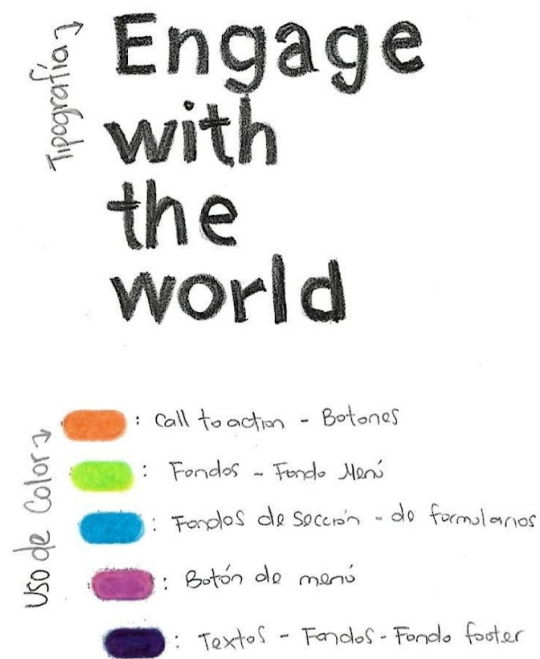 Tipografía
Engage
with
the
world
Uso de Color
: Call to action - Botones
: Fondos - Fondo Menú
: Fondos de sección - de formularios
: Botón de menú
: Textos - Fondos - Fondo footer